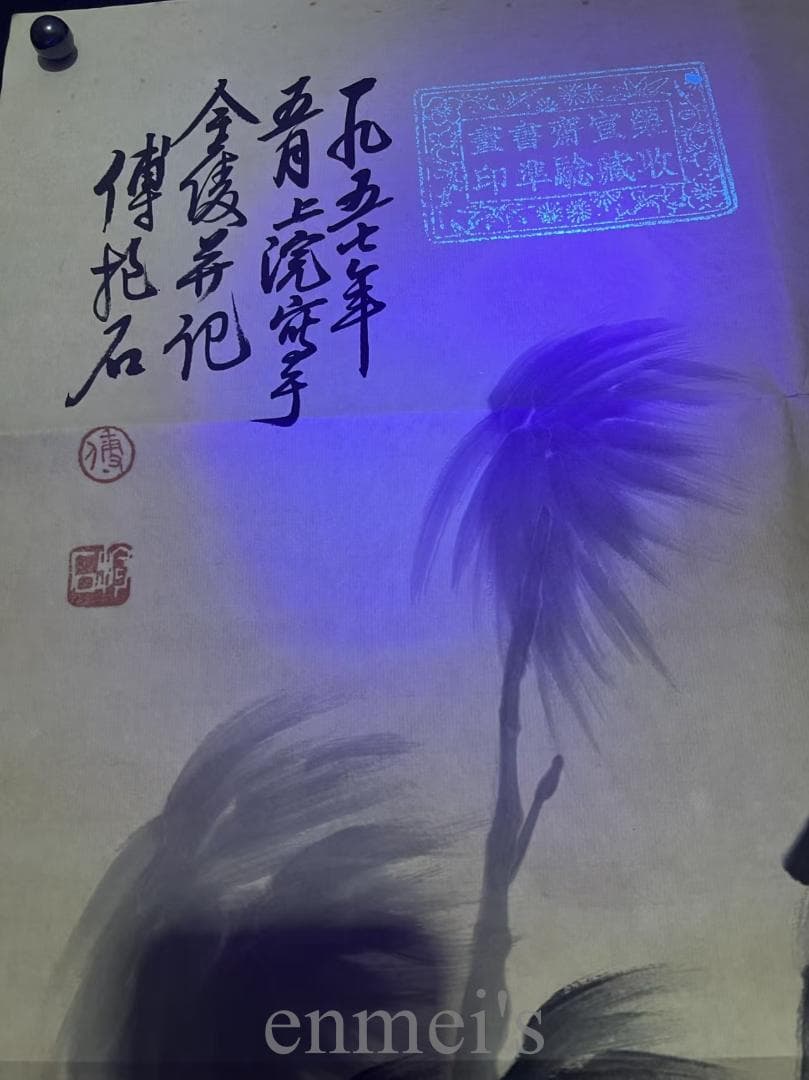 一九五七年
五月上浣寫于
金陵并记
傅抱石
傅
榮宣齋書畫
收藏驗準印
enmei's